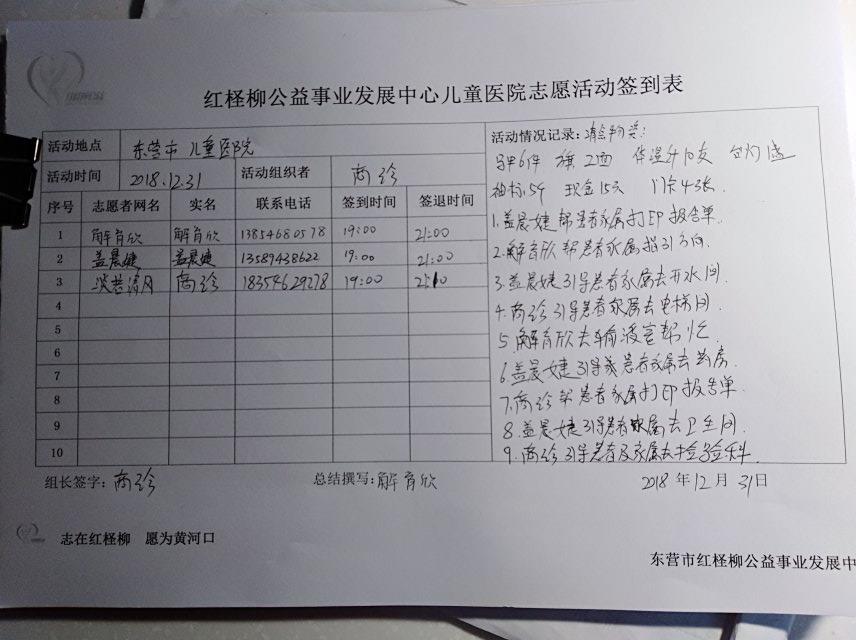 红柽柳公益事业发展中心儿童医院志愿活动签到表
活动地点 东营市儿童医院
活动时间 2018.12.31 活动组织者 商珍
序号 志愿者网名 实名 联系电话 签到时间 签退时间
1 解育欣 解育欣 13854680578 19:00 21:00
2 盖晨婕 盖晨婕 13589438622 19:00 21:00
3 淡若清风 商珍 18354629278 19:00
4
5
6
7
8
9
10
活动情况记录:
马甲6件 旗2面
袖标5个 现金15元 门卡43张
1.盖晨婕帮患者家属打印报告单.
2.解育欣帮患者家属指引方向.
3.盖晨婕引导患者家属去开水间.
4.商珍引导患者家属去电梯间.
5.解育欣去输液室帮忙
6.盖晨婕引导患者家属去药房.
7.商珍帮患者家属打印报告单.
8.盖晨婕引导患者家属去卫生间.
9.商珍引导患者及家属去检验科.
组长签字:商珍 总结撰写:解育欣 2018年12月31日
志在红柽柳 愿为黄河口
东营市红柽柳公益事业发展中